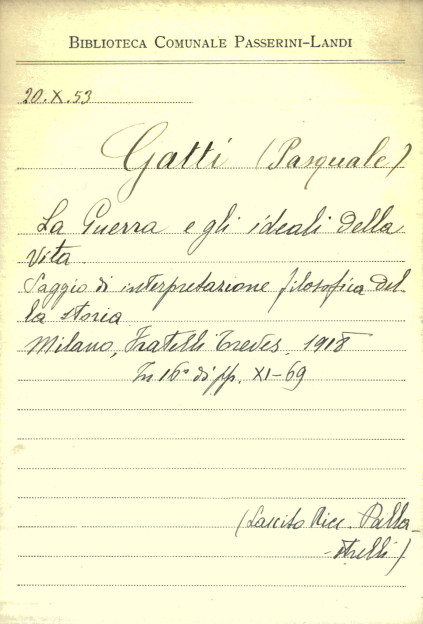 BIBLIOTECA COMUNALE PASSERINI-LANDI
20.X.53
Gatti (Pasquale)
La Guerra e gli ideali della
vita.
Saggio di interpretazione filosofica del-
la storia
Milano, Fratelli Treves, 1918
In 16° di pp. XI-69
(Lascito Ricc. Palla-
-strelli)